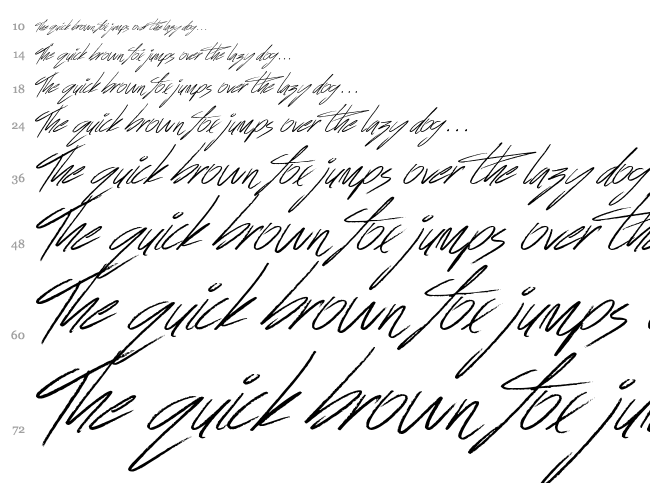 10 The quick brown fox jumps over the lazy dog...
14 The quick brown fox jumps over the lazy dog...
18 The quick brown fox jumps over the lazy dog...
24 The quick brown fox jumps over the lazy dog...
36 The quick brown fox jumps over the lazy dog
48 The quick brown fox jumps over the
60 The quick brown fox jumps
72 The quick brown fox jum